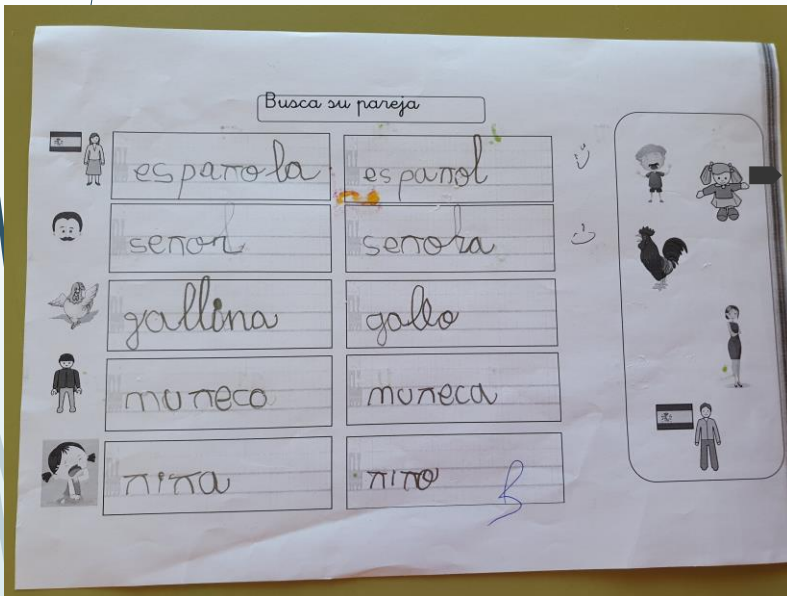 Busca su pareja
española español
señor señora
gallina gallo
muñeco muñeca
niña niño
B